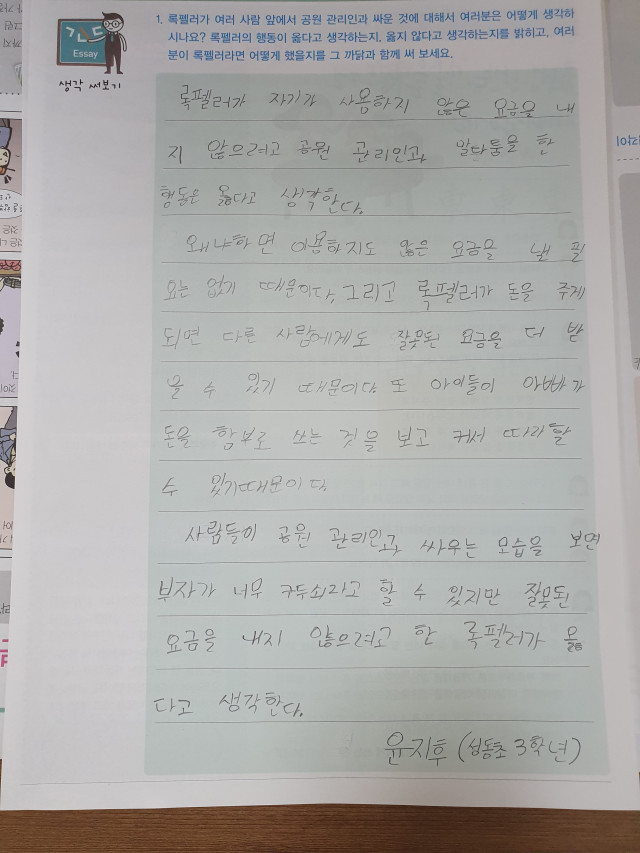 간드
Essay
생각 써보기
1. 록펠러가 여러 사람 앞에서 공원 관리인과 싸운 것에 대해서 여러분은 어떻게 생각하
시나요? 록펠러의 행동이 옳다고 생각하는지, 옳지 않다고 생각하는지를 밝히고, 여러
분이 록펠러라면 어떻게 했을지를 그 까닭과 함께 써 보세요.
록펠러가 자기가 사용하지 않은 요금을 내
지 않으려고 공원 관리인과 말다툼을 한
행동은 옳다고 생각한다.
왜냐하면 이용하지도 않은 요금을 낼 필
요는 없기 때문이다. 그리고 록펠러가 돈을 주게
되면 다른 사람에게도 잘못된 요금을 더 받
을 수 있기 때문이다. 또 아이들이 아빠가
돈을 함부로 쓰는 것을 보고 커서 따라할
수 있기때문이다.
사람들이 공원 관리인과 싸우는 모습을 보면
부자가 너무 구두쇠라고 할 수 있지만 잘못된
요금을 내지 않으려고 한 록펠러가 옳
다고 생각한다.
윤지후 (성동초 3학년)